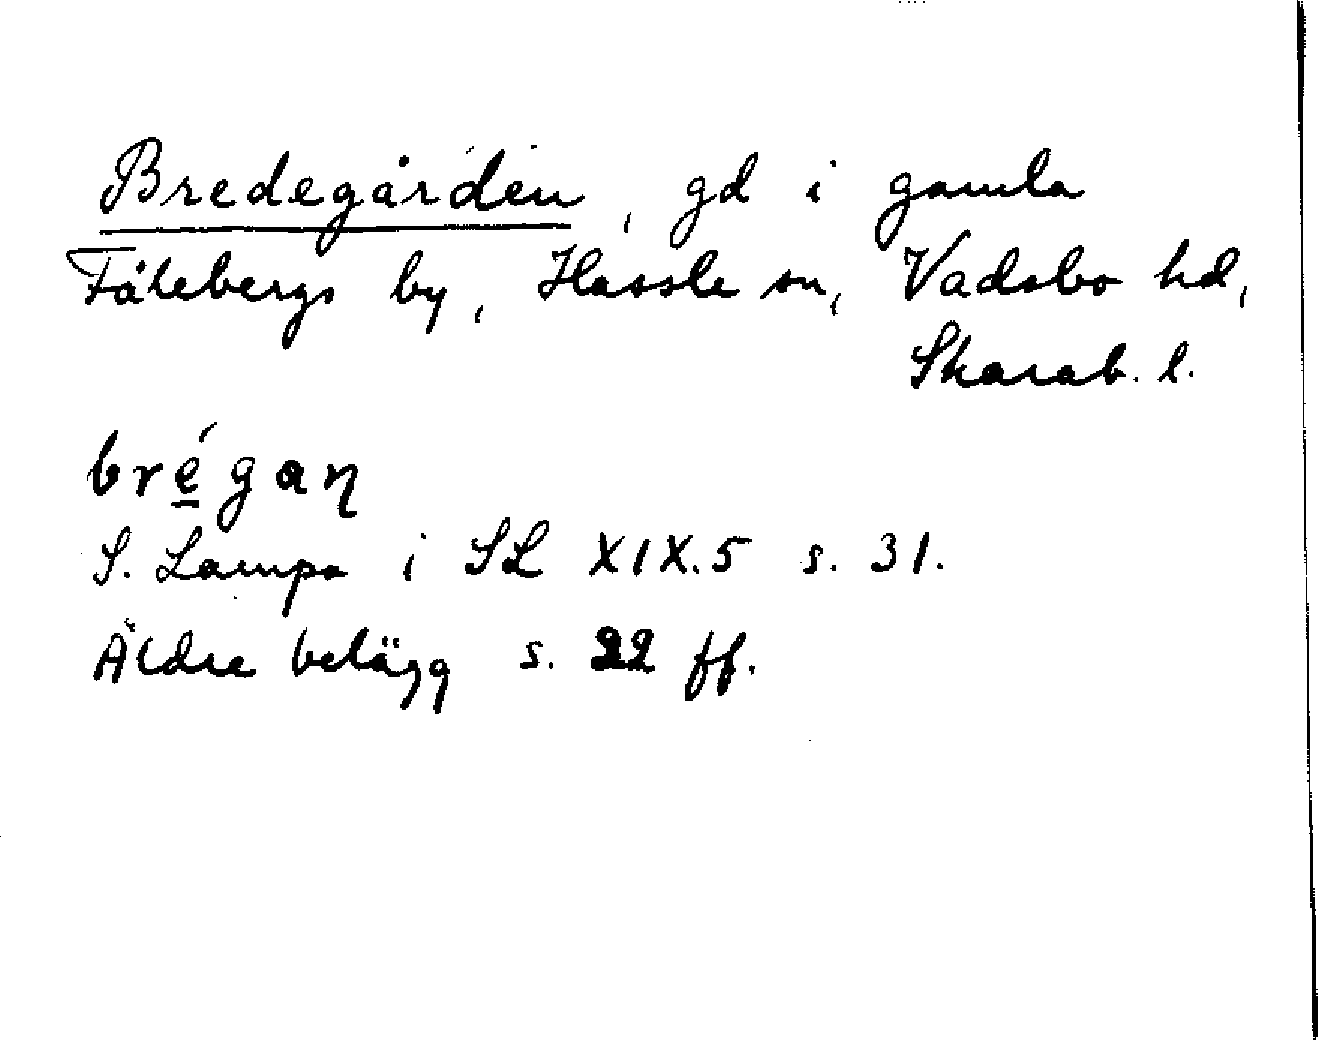 Bredegården, gd i gamla
Fåtebergs by, Hassle sn, Vadsbo hd,
Skarab. l.
bre̱´gaƞ
S. Lampa i SL XIX.5 s. 31.
Äldre belägg s. 22 ff.